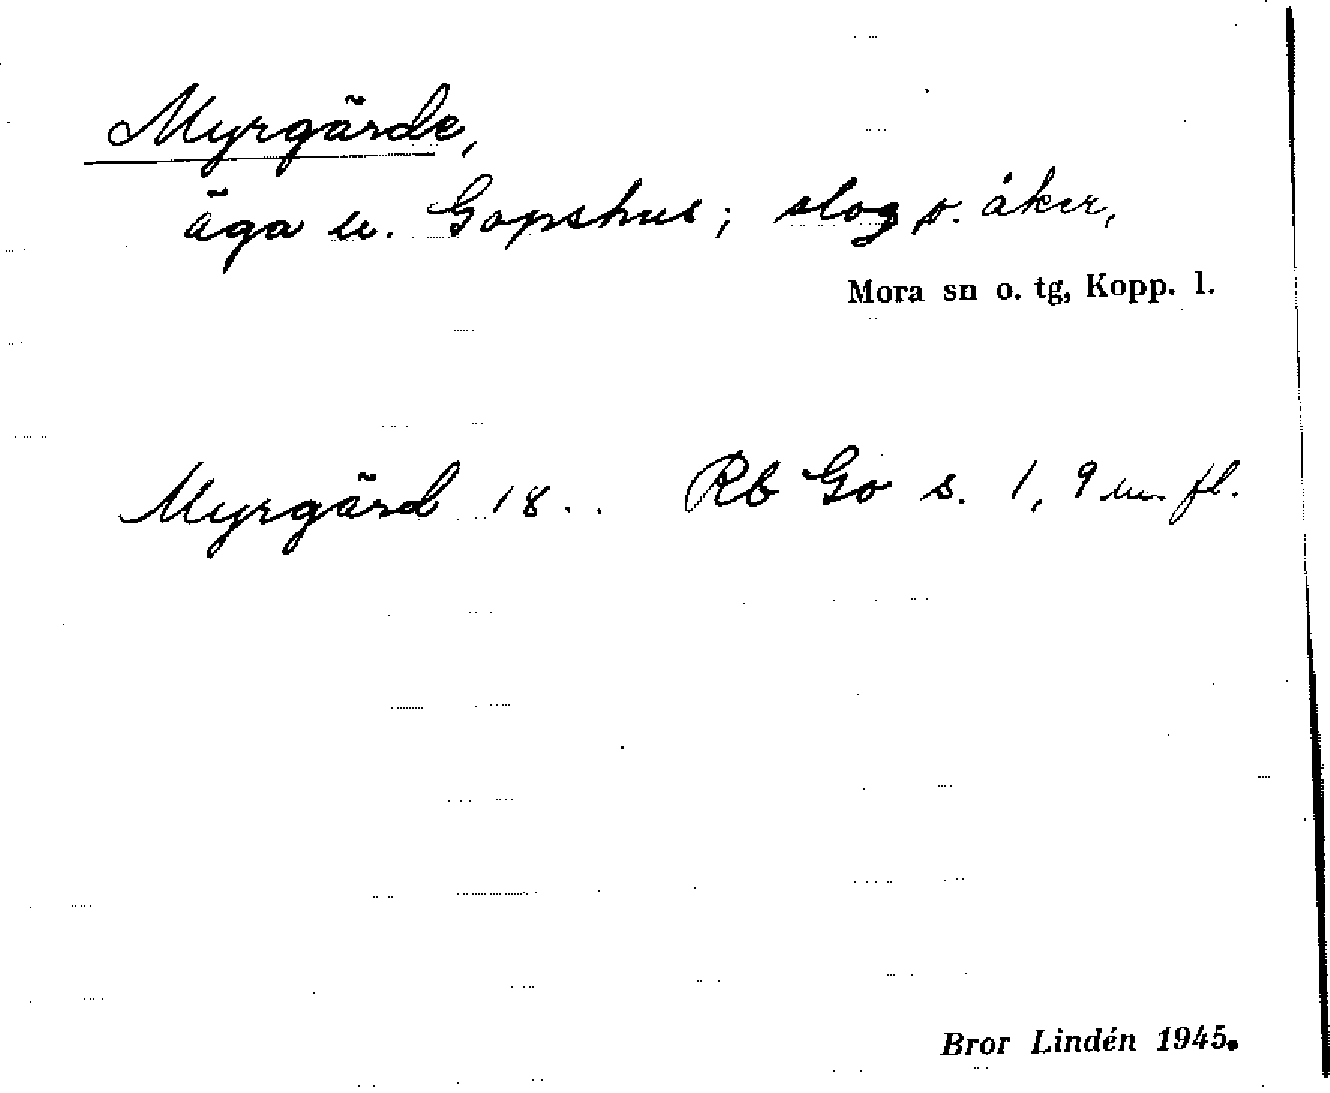 Myrgärde,
äga u. Gopshus; slog o. åker,
Mora sn o. tg, Kopp. l.
Myrgärd 18.. Rb Go s. 1, 9 m. fl.
Bror Lindén 1945.